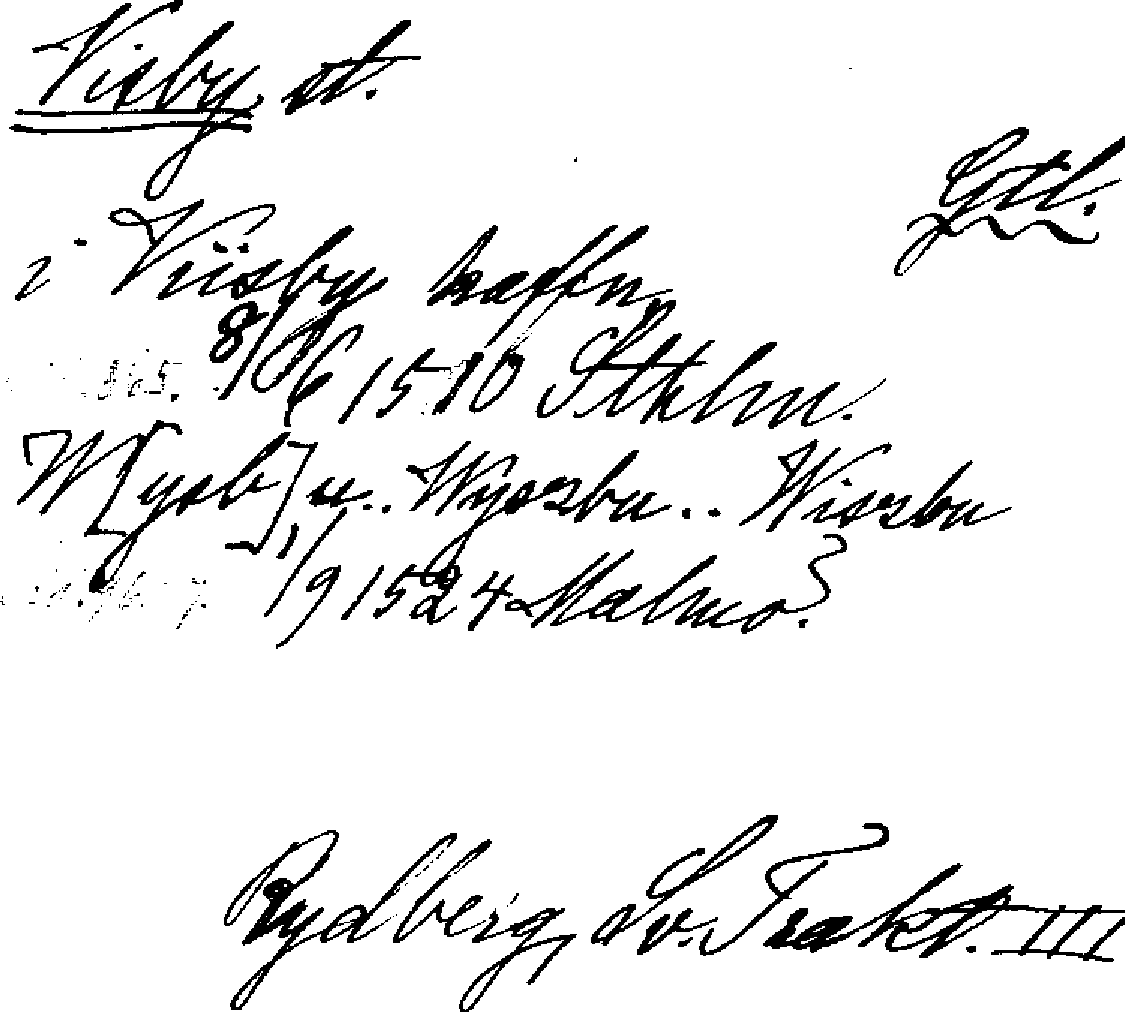 Visby st.
Gtl.
i Viisby haffn
565. 8/6 1510 Sthlm.
W[ysb]u.. Wyszbu.. Wiszbu
1/9 1524 Malmö.
Rydberg, Sv. Trakt. III